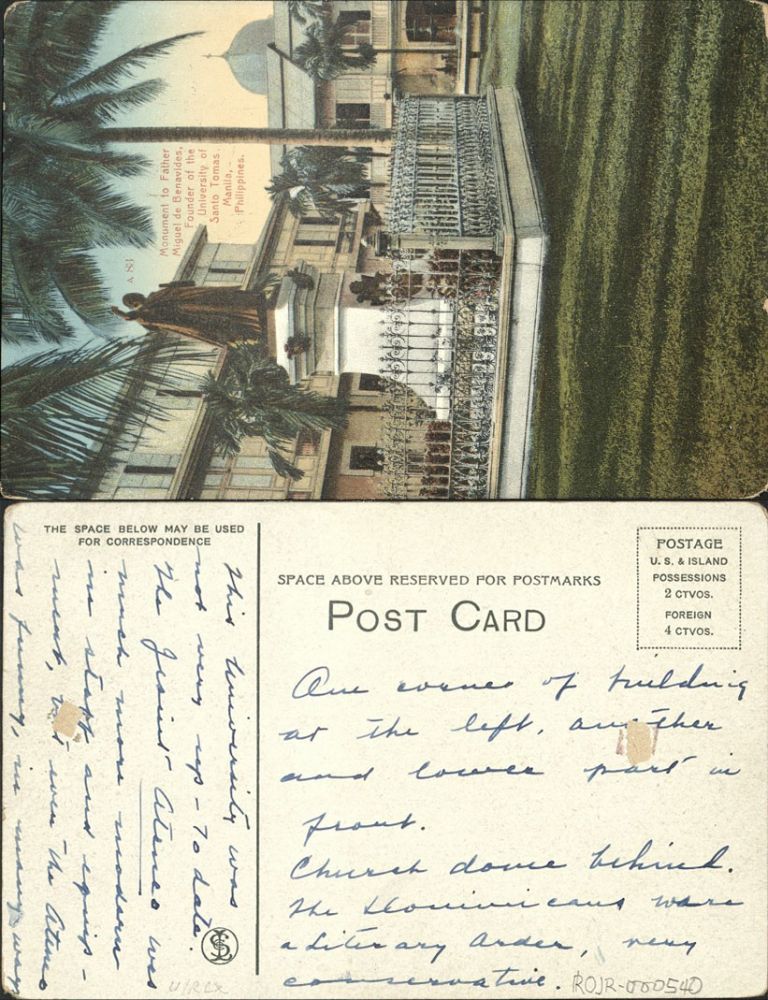 A 81
Monument to Father
Miguel de Benavides,
Founder of the
University of
Santo Tomas.
Manila,
Philippines.
THE SPACE BELOW MAY BE USED
FOR CORRESPONDENCE
This University was
not very up-to date.
The Jesuit Ateneo was
much more modern
in staff and equip-
ment, but even the Ateneo
was funny, in many way
SPACE ABOVE RESERVED FOR POSTMARKS
POST CARD
POSTAGE
U. S. & ISLAND
POSSESSIONS
2 CTVOS.
FOREIGN
4 CTVOS.
One corner of building
at the left, another
and lower part in
front.
Church dome behind.
The Dominicans were
a literary order, very
conservative.
ROJR-000540